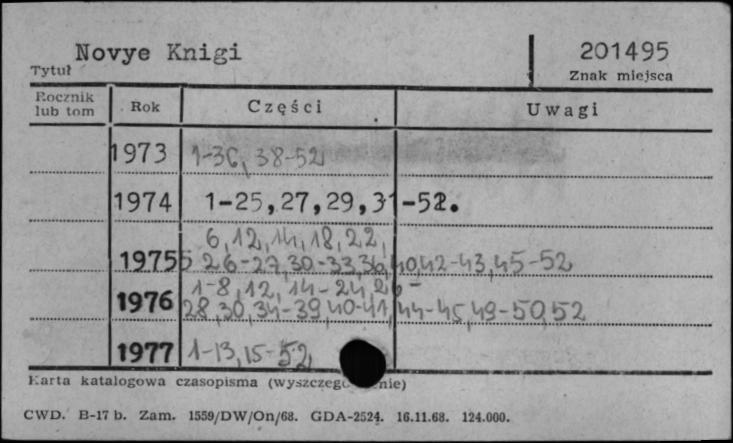 Novye Knigi
201495
Tytuł
Znak miejsca
Rocznik lub tom
Rok
Części
Uwagi
1973 1-36, 38-52
1974 1-25,27,29,31-52.
6, 12, 14, 18, 22,
1975 26-27, 30-33, 36, 40, 42-43, 45-52
1-8, 12, 14-24, 26-
1976 28, 30, 34-39, 40-41, 44-45, 49-50, 52
1977 1-13, 15-52
Karta katalogowa czasopisma
CWD. B-17 b. Zam. 1559/DW/On/68. GDA-2524. 16.11.68. 124.000.